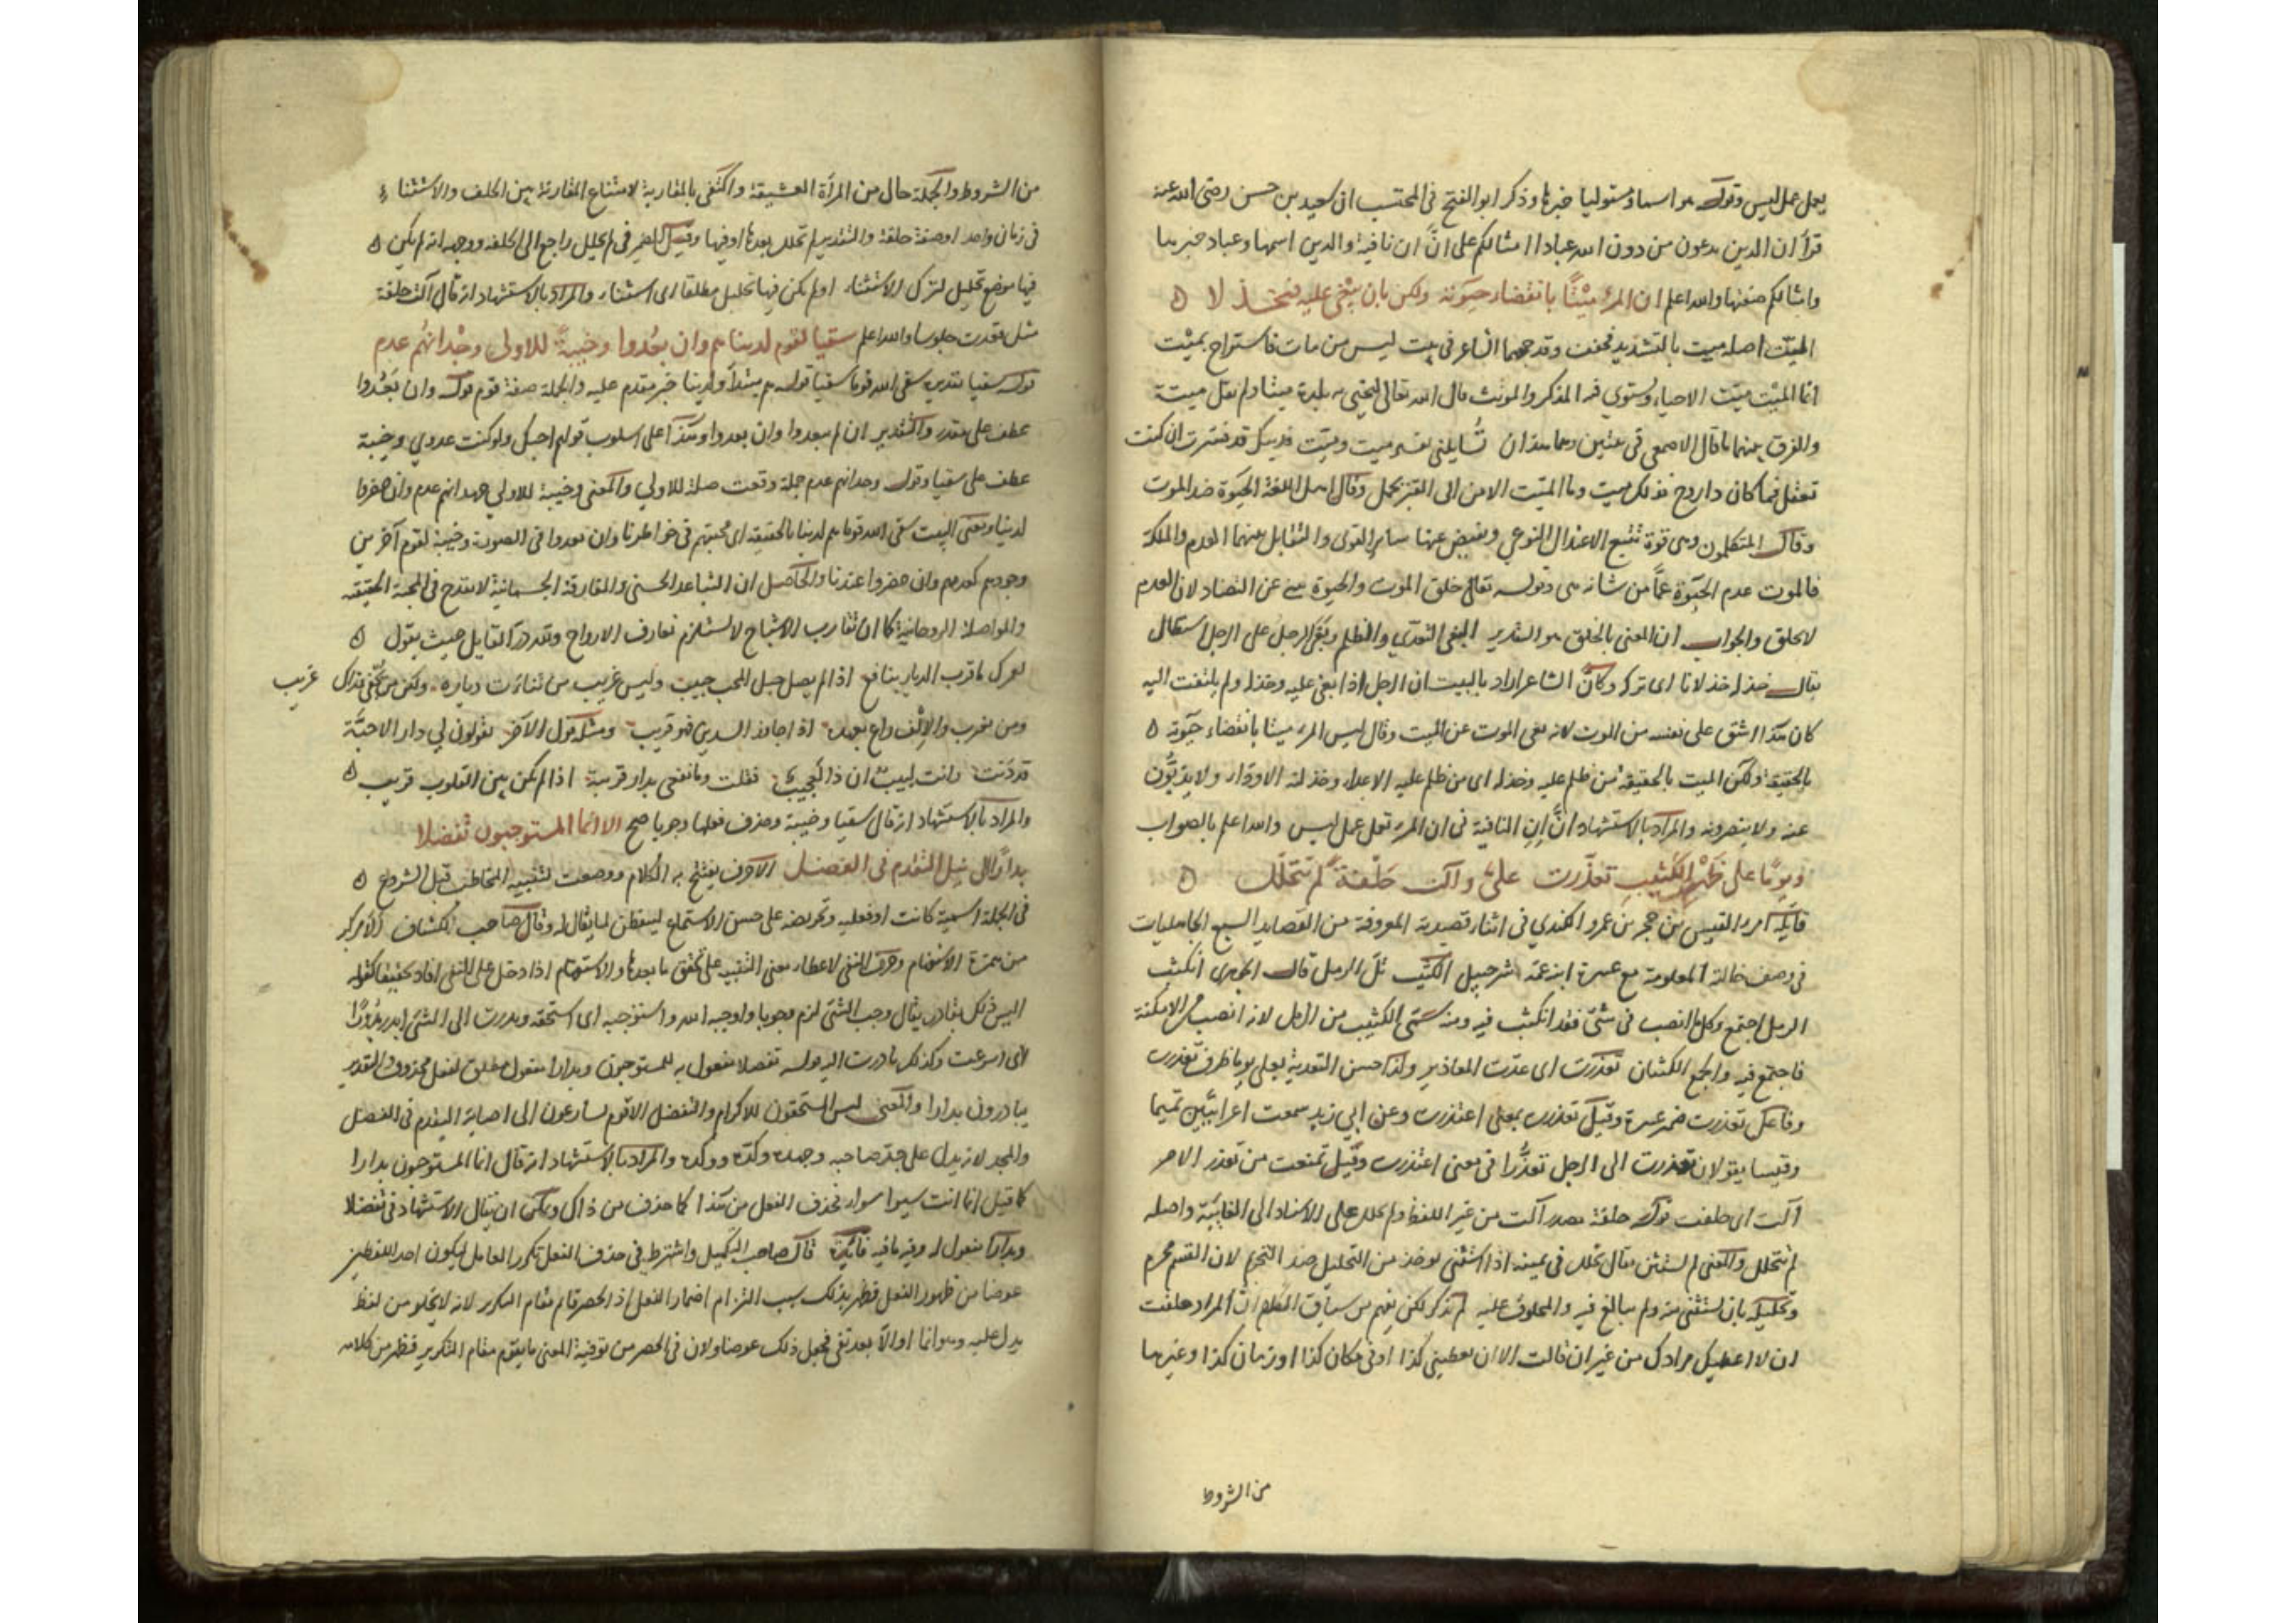 يعمل عمل ليس وقوله هو اسمها ومستوليا خبرها وذكر ابو الفتح في المحتسب ان سعيد بن حسن رضي الله عنه
قرأ ان الذين يدعون من دون الله عبادا امثالكم على انّ ان نافية والذين اسمها وعباد خبرها
وامثالكم صفتها والله اعلم ان المرء ميتًا بانقضاء حيوته ولكن بان يبغى عليه فيخذلا
الميت اصله ميت بالتشديد فخفف وقد جمعهما الشاعر في بيت ليس من مات فاستراح بميت
انما الميت ميّت الاحياء ويستوي فيه المذكر والمونث قال الله تعالى لنحيي به بلدة ميتا ولم يقل ميتة
والفرق بينهما ما قال الاصمعي في بيتين وهما هذان تسايلني تفسير ميت وميّت فدينك قد فسرت ان كنت
تعقل فما كان ذا روح فذلك ميت وما الميّت الا من الى القبر يحمل وقال اهل اللغة الحيوة ضد الموت
وقال المتكلمون وهي قوة تتبع الاعتدال النوعي وتفيض عنها سائر القوى والتقابل بينهما العدم والملكة
فالموت عدم الحيوة عمّا من شانه هي وقوله تعالى خلق الموت والحيوة عن التضاد لان العدم
لا يخلق والجواب ان المعنى بالخلق هو التقدير البغي التعدّي والظلم وبغى الرجل على الرجل استطال
يقال خذله خذلانا اى تركه وكأن الشاعر اراد بالبيت ان الرجل اذا بغى عليه وخذل ولم يلتفت اليه
كان هذا اشق على نفسه من الموت لانه نفى الموت عن الميت وقال ليس المرء ميتا بانقضاء حيوته
بالحقيقة ولكن الميت بالحقيقة من ظلم عليه وخذله اى من ظلم عليه الاعداء وخذله ولا يذبّون
عنه ولا ينصرونه والمراد بالاستشهاد انّ ان النافية في ان المرء تعمل عمل ليس والله اعلم بالصواب
ويومًا على ظهر الكثيب تعذّرت علىّ وآلت حلفةً لم تحلّل
قايله امرء القيس بن حجر بن عمرو الكندي في اثناء قصيدته المعروفة من القصايد السبع الجاهليات
في وصف حاله المعلومة مع عنيزة ابنة عمه شرحبيل الكثيب تلّ الرمل قال الجوهرى انكثب
الرمل اجتمع وكل ما انصب في شئ فقد انكثب فيه ومنه سمّى الكثيب من الرمل لانه انصب في الامكنة
فاجتمع فيه والجمع الكثبان تعذرت اى عدت المعاذير ولذا حسن التعدية بعلى يوما ظرف تعذرت
وفاعل تعذرت ضمير عنيزة وقيل تعذرت بمعنى اعتذرت وعن ابي زيد سمعت اعرابيّين تميميا
وقيسيا يقولان تعذرت الى الرجل تعذّرا في معنى اعتذرت وقيل تمنعت من تعذر الامر
آلت اى حلفت قوله حلفة مصدر آلت من غير اللفظ ولم تحلل على الاسناد الى الغايبة واصله
لم تتحلل والمعنى لم تستثن يقال تحلل في يمينه اذا استثنى يوخذ من التحليل ضد التحريم لان القسم محرم
وتحليله بان يستثنى منه ولم يبالغ فيه والمحلوف عليه لم يذكر لكن يفهم من سياق الكلام ان المراد حلفت
ان لا اعطيك مرادك من غير ان قالت الا ان يعطيني كذا او في مكان كذا او زمان كذا وغيرها
من الشروط
من الشروط والجملة حال من المرأة العشيقة واكتفى بالمقاربة لامتناع المقارنة بين الحلف والاستثناء
في زمان واحد او صفة حلفة والتقدير لم تحلل بعدها او فيها وقيل الضمير في لم يحلل راجع الى الحلفة ووجهه انه لم يكن
فيها موضع تحليل لترك الاستثناء او لم يكن فيها تحليل مطلقا اى استثناء والمراد بالاستشهاد انه قال آلت حلفة
مثل قعدت جلوسا والله اعلم سقيا لقوم لدينا هم وان بعُدوا وخيبةً للاولى وجْدانهُم عدم
قوله سقيا تقديره سقى الله قوما سقيا قوله هم مبتدأ ولدينا خبر مقدم عليه والجملة صفة قوم قوله وان بَعُدوا
عطف على مقدر والتقدير ان لم يبعدوا وان بعدوا وهذا على اسلوب قولهم احبك ولو كنت عدوي وخيبة
عطف على سقيا وقوله وجدانهم عدم جملة وقعت صلة للاولي والمعنى وخيبة للاولي وجدانهم عدم وان حضروا
لدينا ومعنى البيت سقى الله قوما هم لدينا بالحقيقة اى محبتهم في خواطرنا وان بعدوا في الصورة وخيبة لقوم آخرين
وجودهم كعدمهم وان حضروا عندنا والحاصل ان التباعد الحسي والمفارقة الجسمانية لا تقدح في المحبة الحقيقية
والمواصلة الروحانية كما ان تقارب الاشباح لا يستلزم تعارف الارواح ولله در القايل حيث يقول
لعمرك ما قرب الديار بنافع اذا لم يصل حبل المحب حبيب وليس غريب من تناءت دياره ولكن من يجفى فذاك غريب
ومن يغرب والالف راع بعهده اذا جاوز السدين فهو قريب ومثله قول الآخر يقولون لي دار الاحبّة
قد دنت وانت كئيب ان ذا لعجيب فقلت وما نفعى بدار قريبة اذا لم يكن بين القلوب قريب
والمراد بالاستشهاد انه قال سقيا وخيبة وحذف فعلهما وجوبا صح الا انما المستوجبون تفضلا
بدارًا الى نيل التقدم في الفضل الا حرف يفتتح به الكلام ووضعت لتنبيه المخاطب قبل الشروع
في الجملة اسمية كانت او فعلية وتحريضه على حسن الاستماع ليتفطن لما يقال له وقال صاحب الكشاف الا مركبة
من همزة الاستفهام وحرف النفي لاعطاء معنى التنبيه على تحقق ما بعدها والاستفهام اذا دخل على النفي افاد تحقيقا كقوله
اليس ذلك بقادر يقال وجب الشئ لزم وجوبا واوجبه الله واستوجبه اى استحقه وبدرت الى الشئ ابدر بدورًا
اى اسرعت وكذلك بادرت اليه قوله تفضلا مفعول به للمستوجبون وبدارا مفعول مطلق لفعل محذوف والتقدير
يبادرون بدارا والمعنى ليس المستحقون للاكرام والتفضل الا قوم يسارعون الى اصابة التقدم في الفضل
والمجد لانه يدل على صاحبه وجهده وكده ووكده والمراد بالاستشهاد انه قال انما المستوجبون بدارا
كما قيل انما انت سيرا سواء فحذف الفعل من هذا كما حذف من ذاك ويمكن ان يقال الاستشهاد في تفضلا
وبدارا مفعول له وفيه ما فيه فائدة قال صاحب التكميل واشترط في حذف الفعل تكرر العامل ليكون احد اللفظين
عوضا من ظهور الفعل فظهر بذلك سبب التزام اضمار الفعل اذ الحصر قام مقام التكرير لانه لا يخلو من لفظ
يدل عليه وهو انما او الا بعد نفى فجعل ذلك عوضا ولان في الحصر من توفية المعنى ما يقوم مقام التكرير فظهر من كلامه